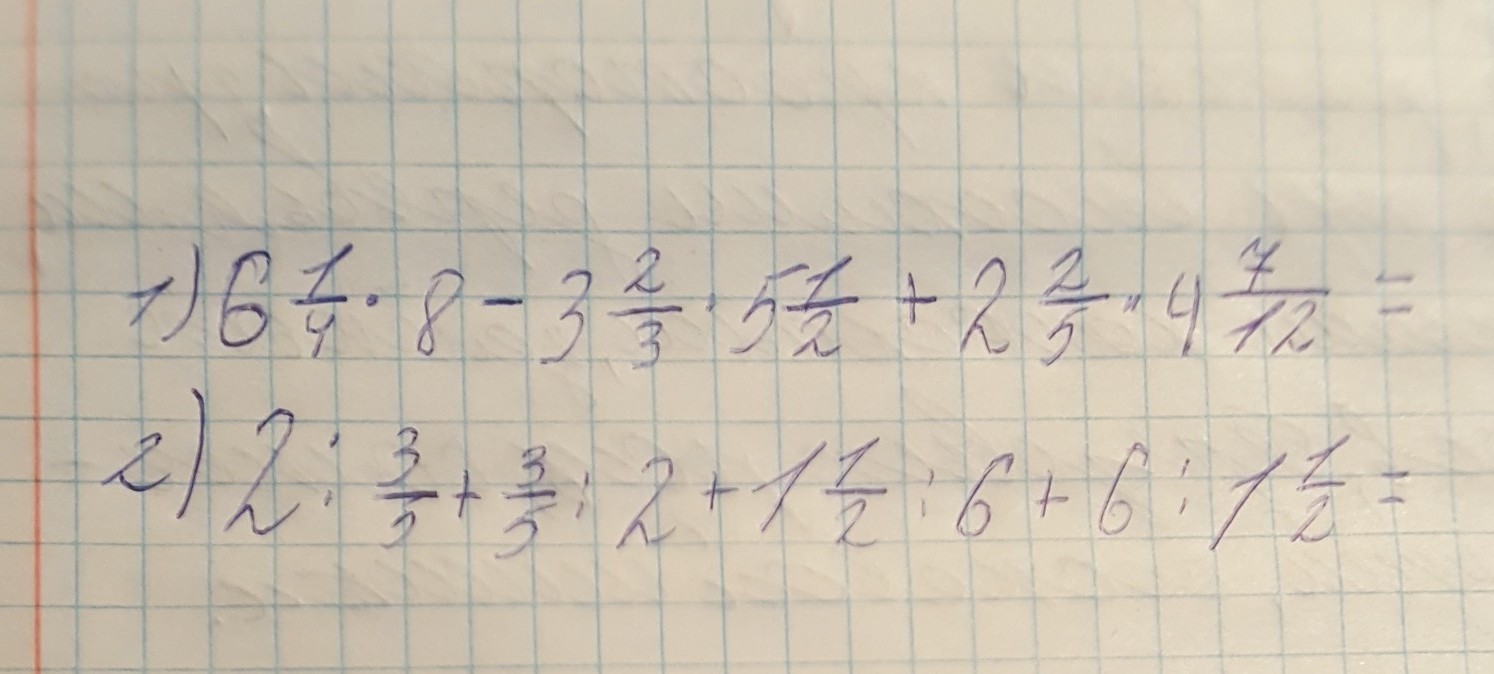 1) 6 1/4 · 8 - 3 2/3 · 5 1/2 + 2 2/5 · 4 7/12 =
2) 2 : 3/5 + 3/5 : 2 + 1 1/2 : 6 + 6 : 1 1/2 =